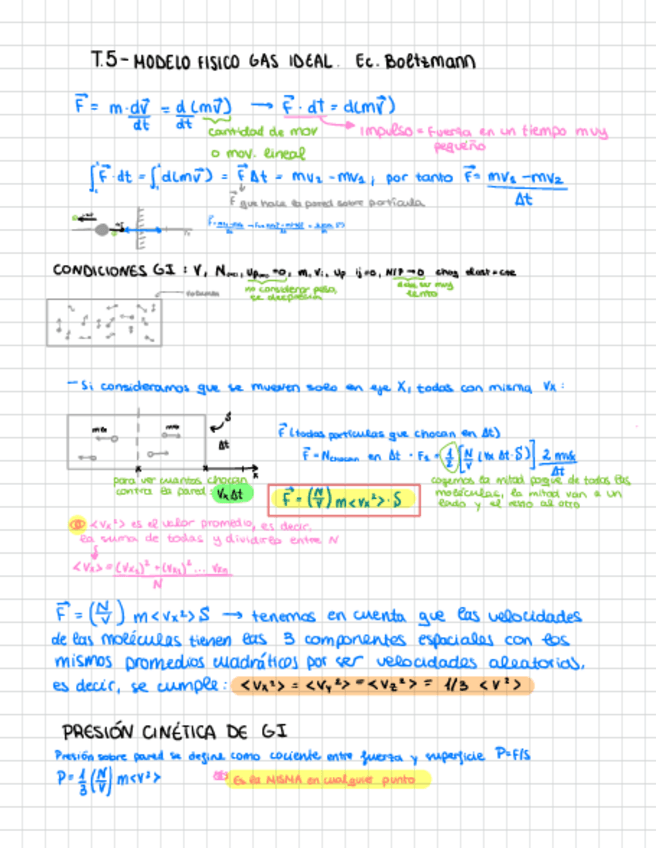 T.5 - MODELO FISICO GAS IDEAL. Ec. Boltzmann
F⃗ = m·dv⃗/dt = d(mv⃗)/dt → F⃗·dt = d(mv⃗)
cantidad de mov
o mov. lineal
impulso = Fuerza en un tiempo muy
pequeño
∫F⃗·dt = ∫d(mv⃗) = F⃗Δt = mv₂ - mv₁; por tanto F⃗ = mv₁ - mv₂ / Δt
F⃗ que hace la pared sobre partícula
CONDICIONES GI: V, N
no considerar peso,
debe ser muy
-Si consideramos que se mueven solo en eje X, todas con misma Vx:
S
Δt
x
F⃗ (todas partículas que chocan en Δt)
F⃗ = Nchocan en Δt · Fx = (1/2)[N/V (vx Δt·S)] 2mvx/Δt
para ver cuantos chocan
contra la pared: VxΔt
cogemos la mitad porque de todas las
moléculas, la mitad van a un
lado y el resto al otro
F⃗ = (N/V) m<vx²>·S
<vx²> es el valor promedio, es decir,
la suma de todas y dividirla entre N
<vx> = (vx₁)² + (vx₂)² ... vxn / N
F⃗ = (N/V) m<vx²>S → tenemos en cuenta que las velocidades
de las moléculas tienen las 3 componentes espaciales con los
mismos promedios cuadráticos por ser velocidades aleatorias,
es decir, se cumple: <vx²> = <vy²> = <vz²> = 1/3 <v²>
PRESIÓN CINÉTICA DE GI
Presión sobre pared se define como cociente entre fuerza y superficie P=F/S
P = 1/3 (N/V) m<v²>
Es la MISMA en cualquier punto